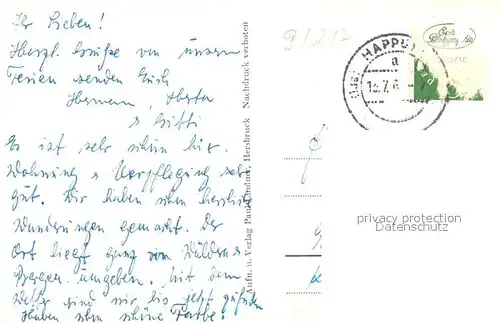 Ihr Lieben!
Herzl. Grüße von unseren
Ferien senden Euch
Hermann, Herta
& Gitti
Es ist sehr schön hier.
Wohnung & Verpflegung sehr
gut. Wir haben schon herrliche
Wanderungen gemacht. Der
Ort liegt ganz von Wäldern &
Bergen umgeben. Mit dem
Wetter sind wir bis jetzt zufrieden
Haben schon schöne Farbe!
Aufn. u. Verlag Paul Lindner, Hersbruck Nachdruck verboten
HAPPU
a
privacy protection
Datenschutz